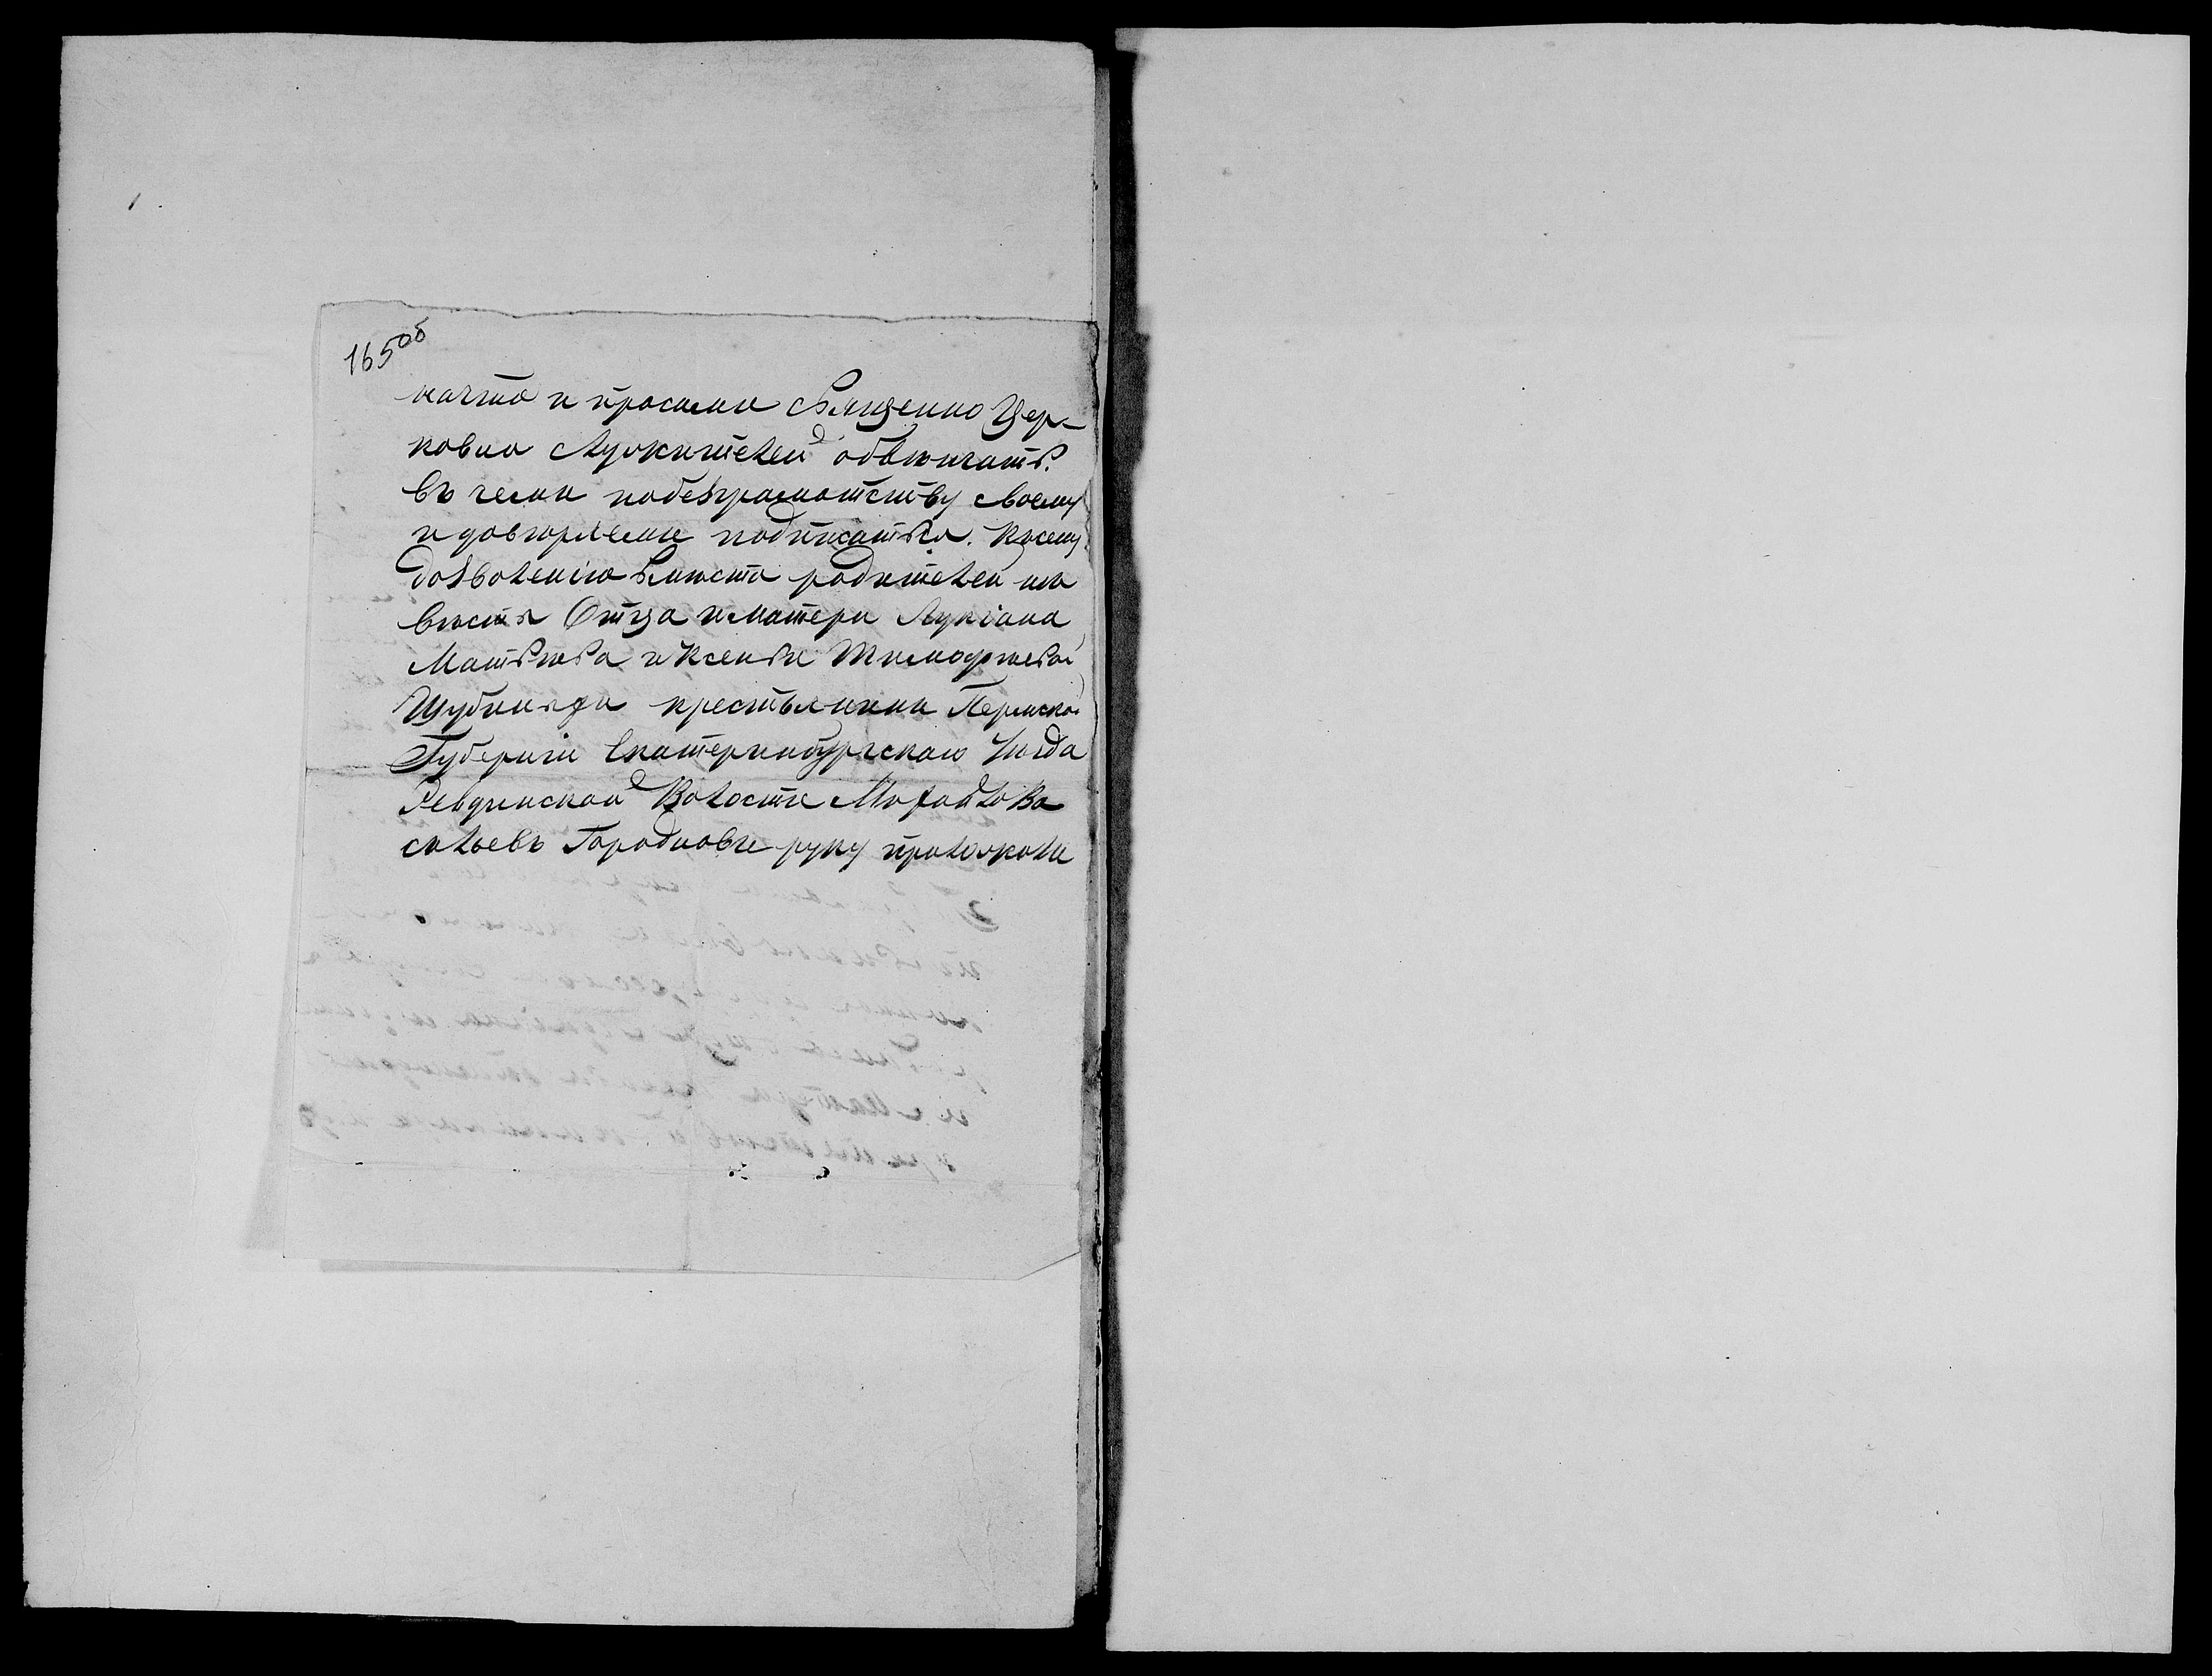 165об
начто и просимъ Священно Цер-
ковно Служителей обвенчать.
въ чемъ побезграмотству своему
и доверяемъ подписатся. Ксему
дозволенію вместо родителей не
весты Отца иматери Лукіана
Матвеева и Ксеньи Тимофеевой
Шубиныхъ крестьянинъ Пермской
Губерніи Екатеринбургскаго Уезда
Ревдинской Волости Михайло Ва
сильевъ Городновъ руку приложилъ